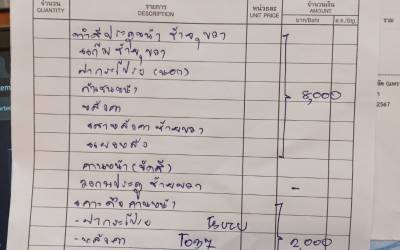 จำนวน รายการ หน่วยละ จำนวนเงิน
QUANTITY DESCRIPTION UNIT PRICE AMOUNT
บาท/Baht ส.ต./Stg.
รวม
ทำสีประตูหน้า ซ้าย,ขวา
แก้มซ้าย,ขวา
ฝากระโปรง (นอก)
กันชนหน้า 8,000
หลังคา
เสาหลังคา ซ้ายขวา
แผงหลัง
คานหน้า (ขัดสี)
ซ้ายขวา -
2567
- ฝากระโปรง ISUZU
- หลังคา 2,000